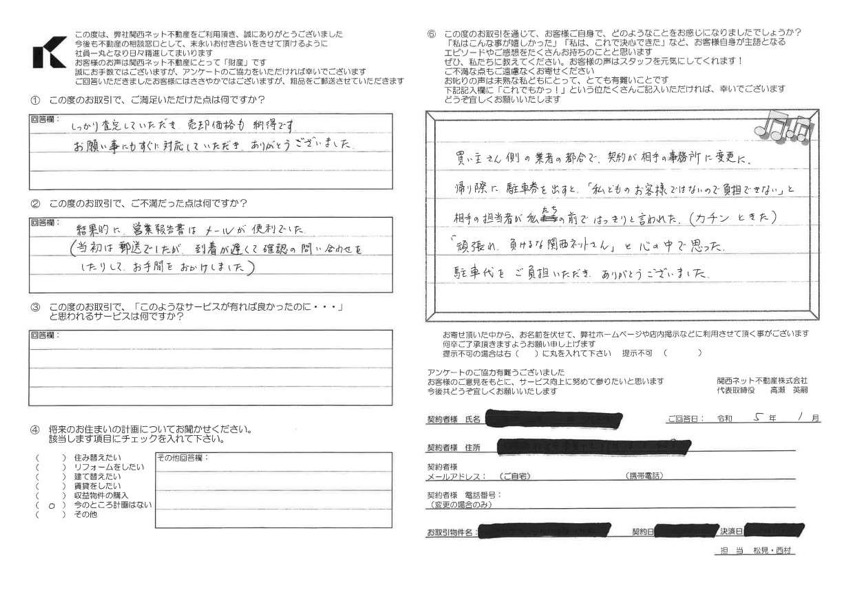 この度は、弊社関西ネット不動産をご利用頂き、誠にありがとうございました
今後も不動産の相談窓口として、末永いお付き合いをさせて頂けるように
社員一丸となり日々精進してまいります
お客様のお声は関西ネット不動産にとって「財産」です
誠にお手数ではございますが、アンケートのご協力をいただければ幸いでございます
ご回答いただきましたお客様にはささやかではございますが、粗品をご郵送させていただきます
① この度のお取引で、ご満足いただけた点は何ですか？
回答欄：
しっかり査定していただき 売却価格も 納得です
お願い事にもすぐに対応していただき、ありがとうございました
② この度のお取引で、ご不満だった点は何ですか？
回答欄：
結果的に、営業報告書は メールが 便利でした
(当初は 郵送でしたが、到着が遅くて確認の問い合わせを
したりして お手間を おかけしました)
③ この度のお取引で、「このようなサービスが有れば良かったのに・・・」
と思われるサービスは何ですか？
回答欄：
④ 将来のお住まいの計画についてお聞かせください。
該当します項目にチェックを入れて下さい。
（　　）住み替えたい
（　　）リフォームをしたい
（　　）建て替えたい
（　　）賃貸をしたい
（　　）収益物件の購入
（ ○ ）今のところ計画はない
（　　）その他
その他回答欄：
⑥ この度のお取引を通じて、お客様ご自身で、どのようなことをお感じになりましたでしょうか？
「私はこんな事が嬉しかった」「私は、これで決心できた」など、お客様自身が主語となる
エピソードやご感想をたくさんお持ちのことと思います
ぜひ、私たちに教えてください。お客様の声はスタッフを元気にしてくれます！
ご不満な点もご遠慮なくお寄せください
お叱りの声は未熟な私どもにとって、とても有難いことです
下記記入欄に「これでもかっ！」という位たくさんご記入いただければ、幸いでございます
どうぞ宜しくお願いいたします
買い主さん側の業者の都合で、契約が相手の事務所に変更に、
帰り際に 駐車券を出すと、「私どものお客様ではないので負担できない」と
相手の担当者が私たちの前で はっきりと言われた。(カチン ときた)
「頑張れ、負けるな関西ネットさん」と 心の中で思った。
駐車代を ご負担いただき、ありがとうございました。
お寄せ頂いた中から、お名前を伏せて、弊社ホームページや店内掲示などに利用させて頂く事がございます
何卒ご了承頂きますようお願い申し上げます
提示不可の場合は右（　）に丸を入れて下さい　提示不可（　　　）
アンケートのご協力有難うございました
お客様のご意見をもとに、サービス向上に努めて参りたいと思います
今後共どうぞ宜しくお願いいたします
関西ネット不動産株式会社
代表取締役　高瀬　英嗣
契約者様 氏名
ご回答日： 令和 5 年 1 月
契約者様 住所
契約者様
メールアドレス：（ご自宅）　（携帯電話）
契約者様 電話番号：
（変更の場合のみ）
お取引物件名：　契約日　決済日
担 当 松見・西村